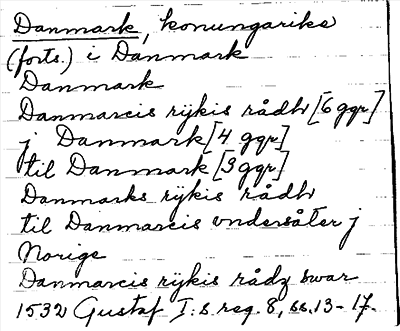 Danmark, konungarike
(forts.) i Danmark
Danmark
Danmarcis rijkis rådh [6 ggr]
j Danmark [4 ggr]
til Danmark [3 ggr]
Danmarks rijkis rådh
til Danmarcis vndersåter j
Norige
Danmarcis rijkis rådz swar
1532 Gustaf I:s reg. 8, ss. 13-17.